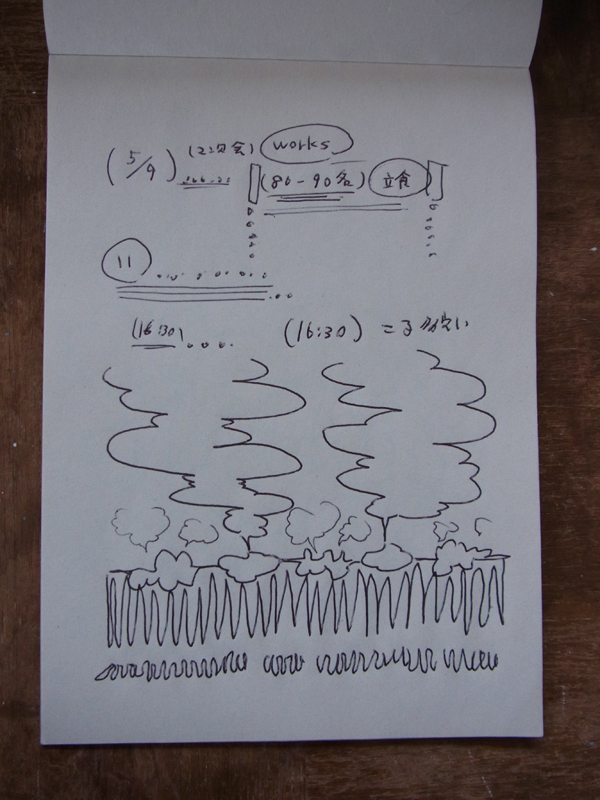 (5/9) (2次会) works
(80-90名) 立食
11
(16:30) (16:30)